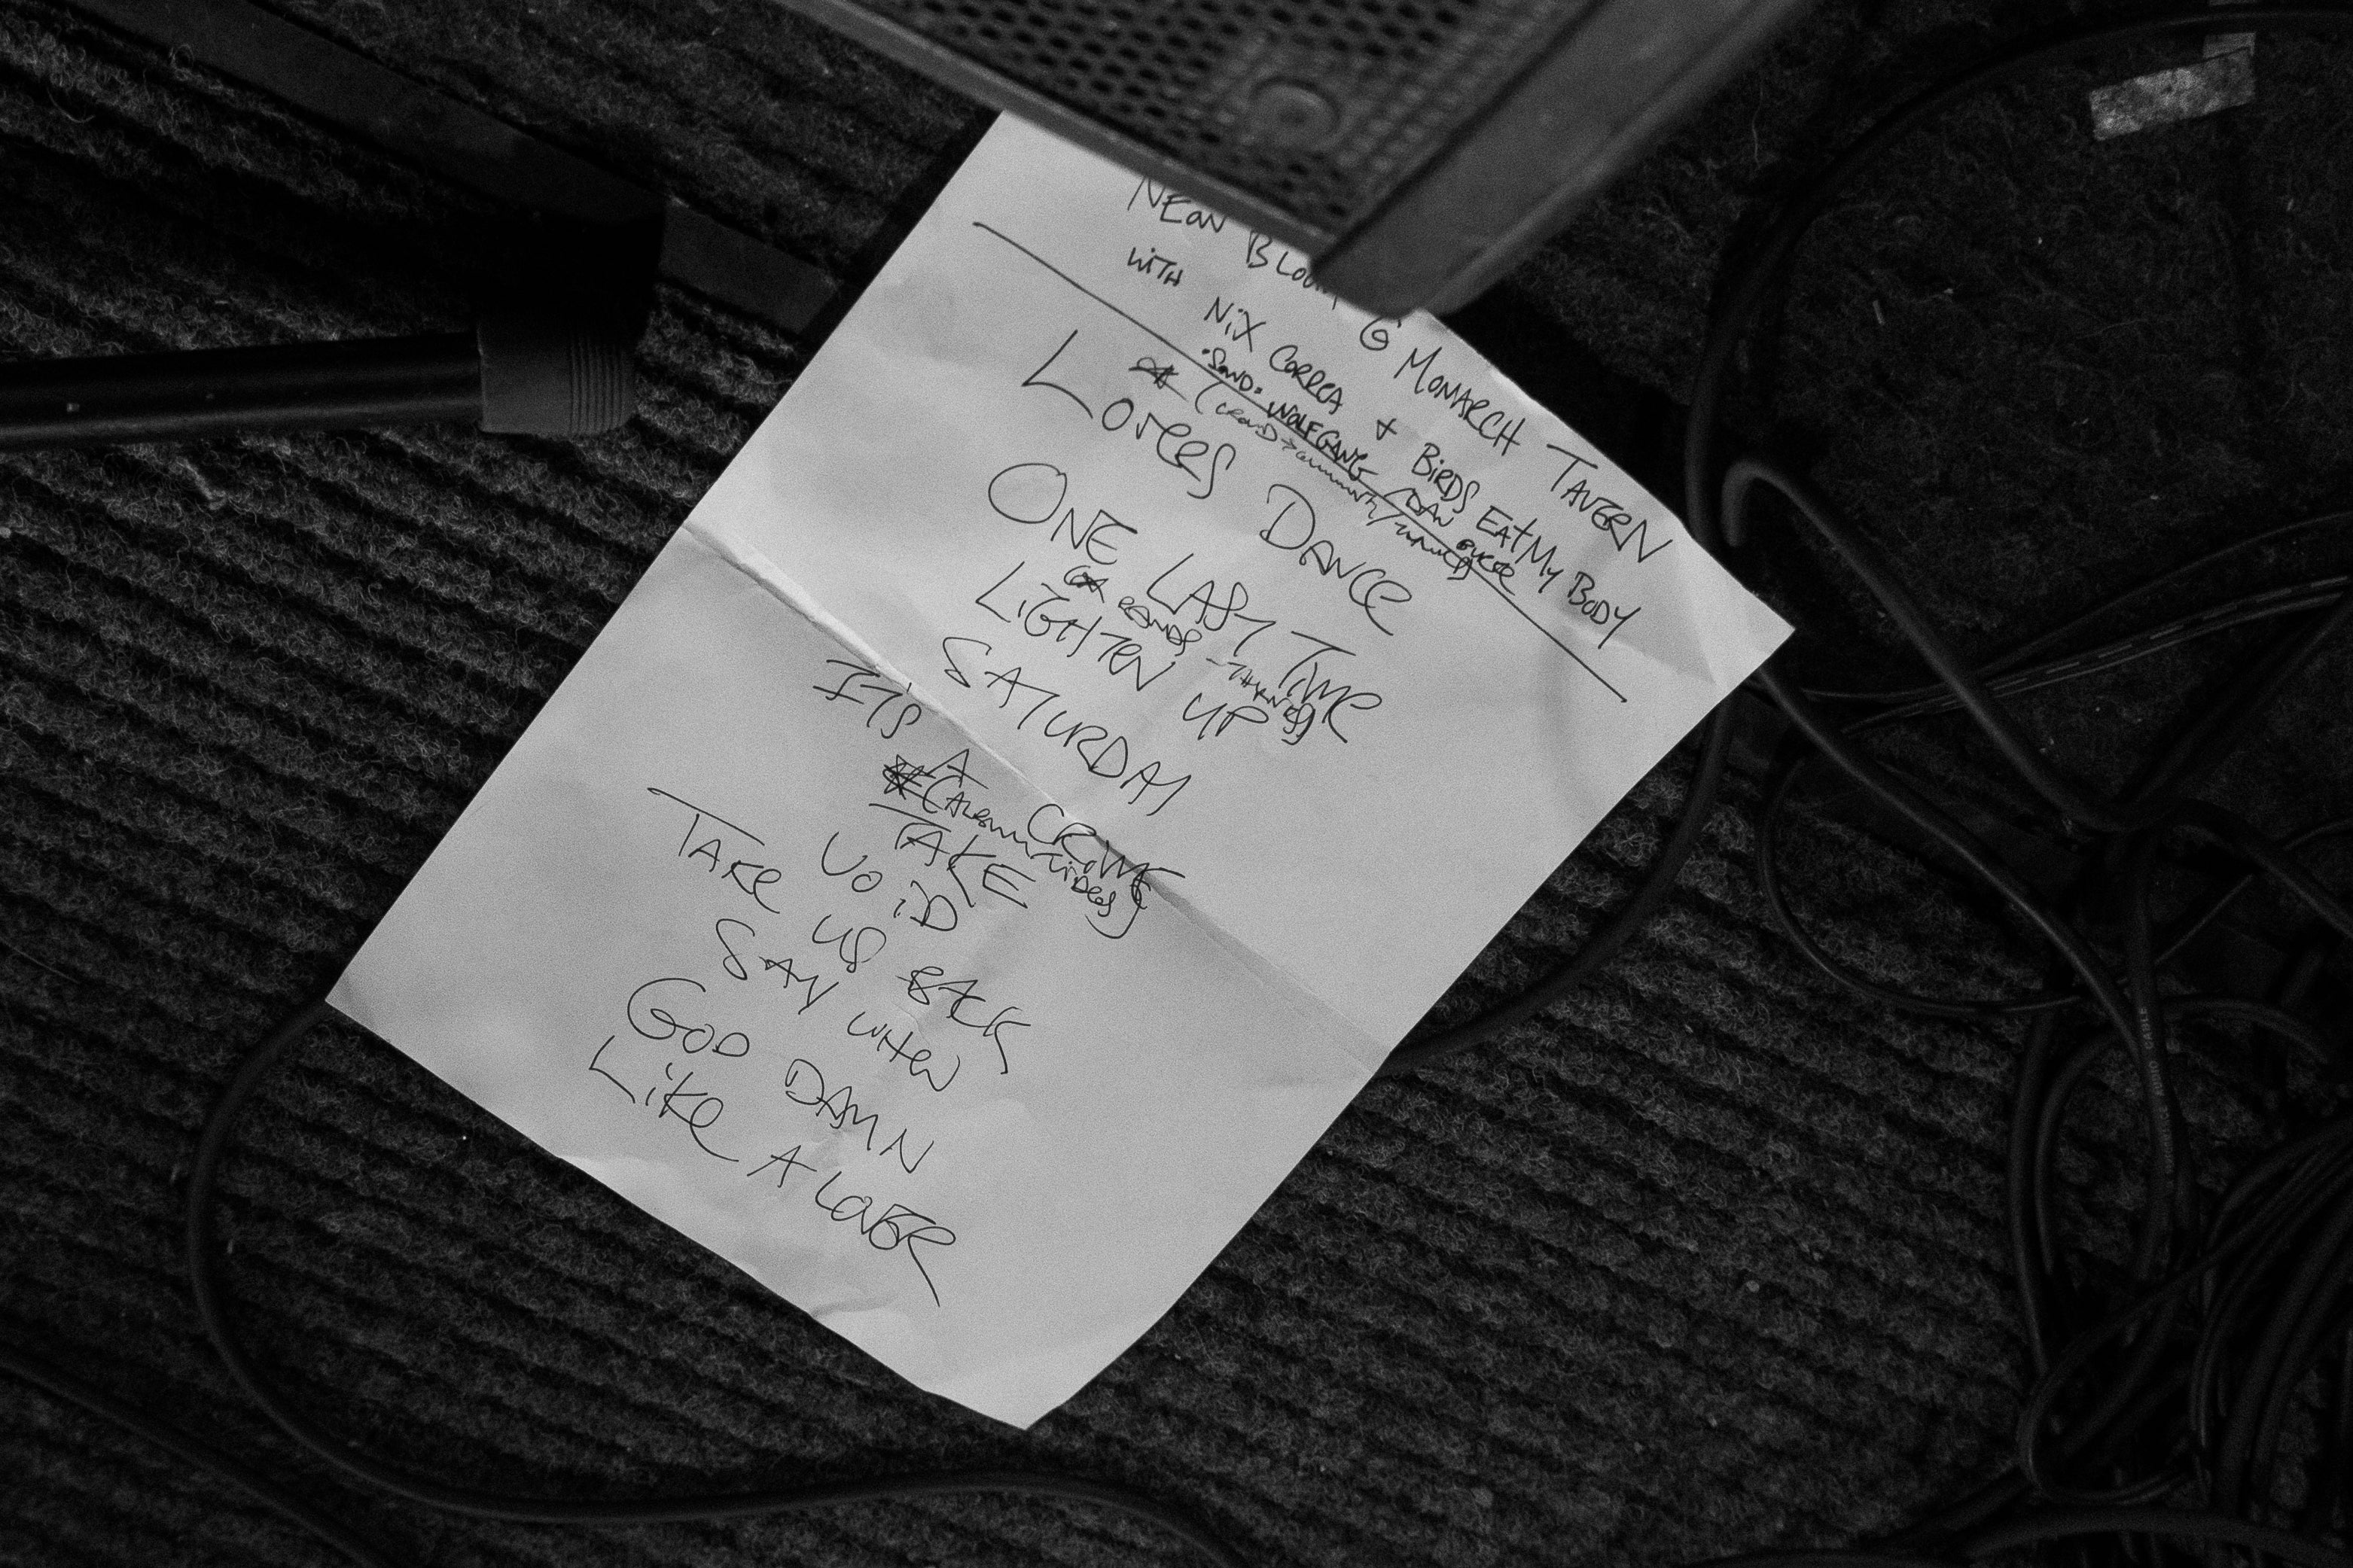 NEON BLOOM @ MONARCH TAVERN
WITH NiX CORREA + BiRDS EAT MY BODY
• SOUND: WOLFGANG / DAN
(CROWD → COMMUNITY /
LOSERS DANCE
ONE LAST TIME
BANDS - THANKS)
LiGHTEN UP
SATURDAY
IT'S A CRiME
(ALBUM / ViDEOS)
TAKE
VOiD
TAKE US BACK
SAY WHEN
GOD DAMN
LiKE A LOVER